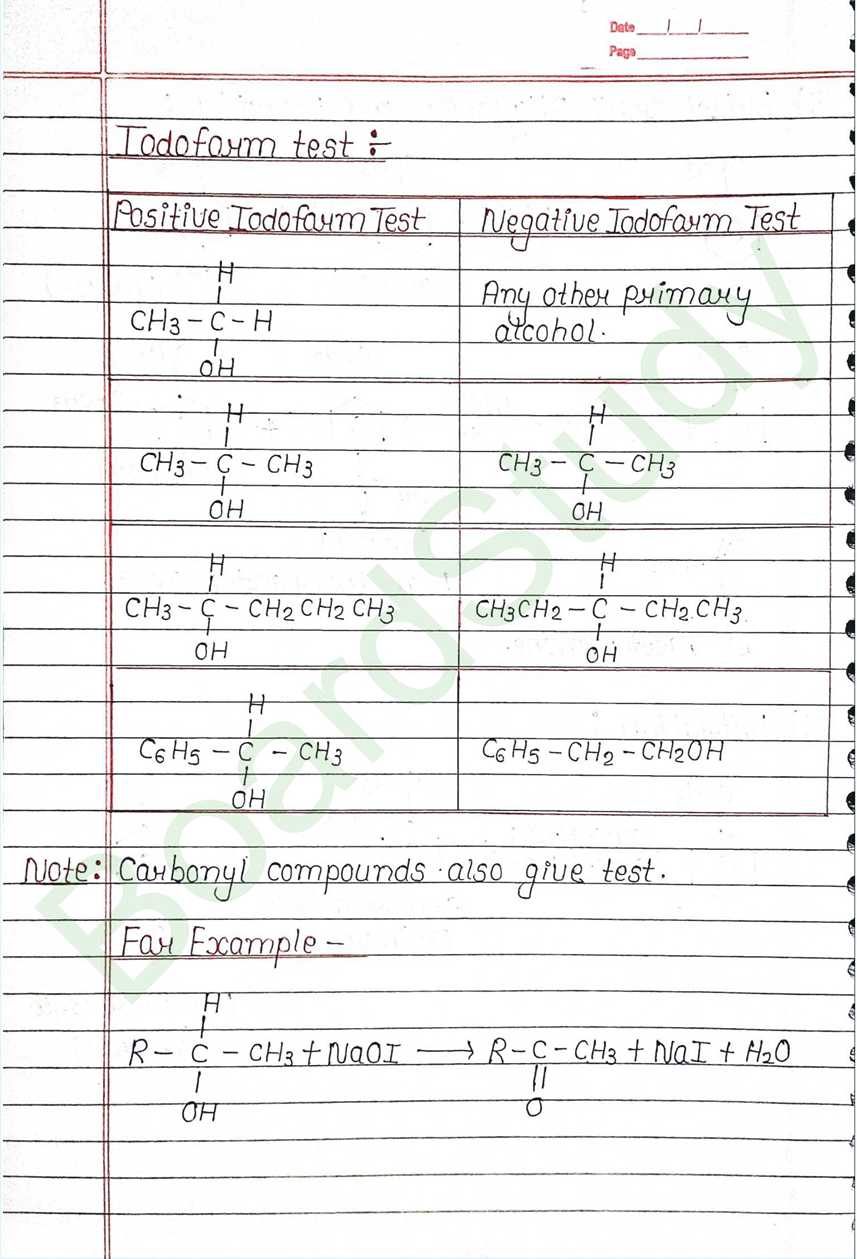 Date / /
Page
Iodofarm test :-
Positive Iodofarm Test
Negative Iodofarm Test
H
CH3 - C - H
OH
Any other primary
alcohol.
H
CH3 - C - CH3
OH
H
CH3 - C - CH3
OH
H
CH3 - C - CH2 CH2 CH3
OH
H
CH3CH2 - C - CH2 CH3
OH
H
C6H5 - C - CH3
OH
C6H5 - CH2 - CH2OH
Note: Carbonyl compounds also give test.
Far Example -
H
R - C - CH3 + NaOI ⟶ R - C - CH3 + NaI + H2O
OH
O
BoardStudy